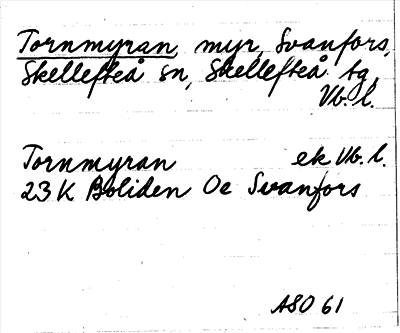 Tornmyran, myr, Svanfors,
Skellefteå sn, Skellefteå tg
Vb. l.
Tornmyran ek Vb. l.
23 K Boliden Oe Svanfors
ASO 61